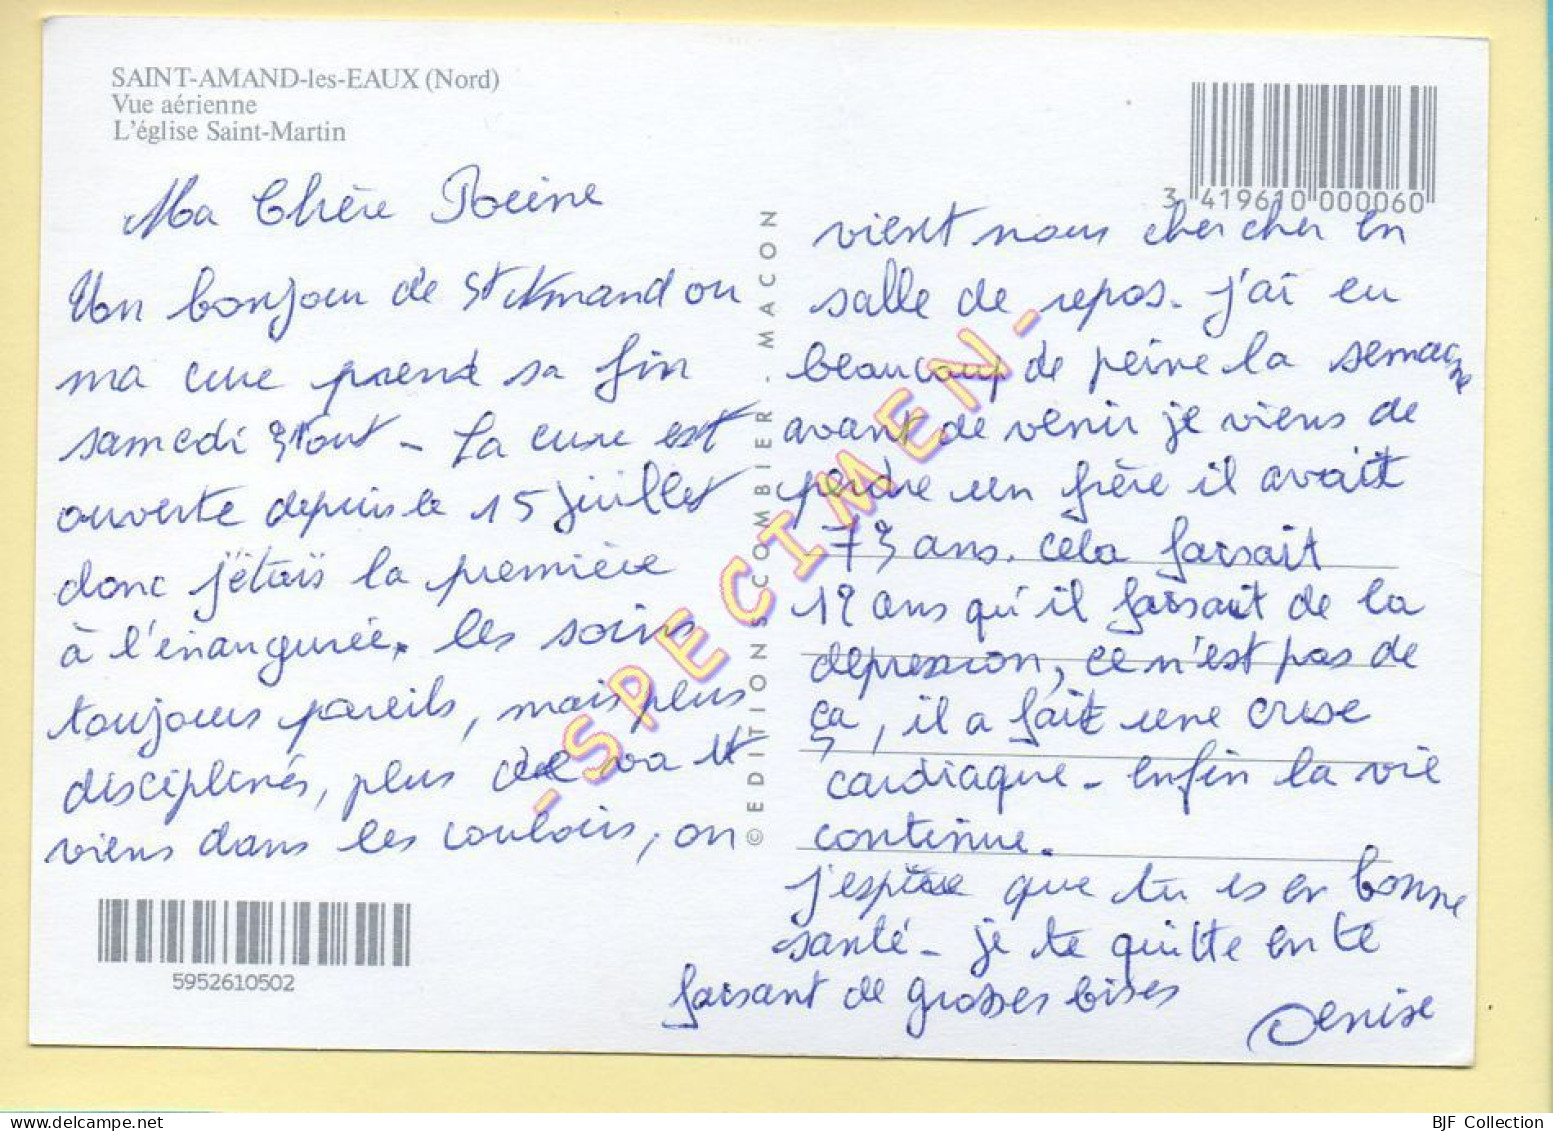 SAINT-AMAND-les-EAUX (Nord)
Vue aérienne
L'église Saint-Martin
Ma Chère Reine
Un bonjour de St Amand ou
ma cure prend sa fin
samedi 31 out - La cure est
ouverte depuis le 15 juillet
donc j'étais la première
à l'énangurée. les soins
toujours pareils, mais plus
disciplinés, plus de va et
viens dans les couloirs, on
5952610502
© EDITIONS COMBIER . MACON
-SPECIMEN-
3 419610 000060
vient nous chercher en
salle de repos. j'ai eu
beaucoup de peine la semaine
avant de venir je viens de
perdre un frère il avait
73 ans. cela faisait
12 ans qu'il faisait de la
depression, ce n'est pas de
ça, il a fait une crise
cardiaque - enfin la vie
continue.
j'espère que tu es en bonne
santé - je te quitte en te
faisant de grosses bises
Denise
BJF Collection